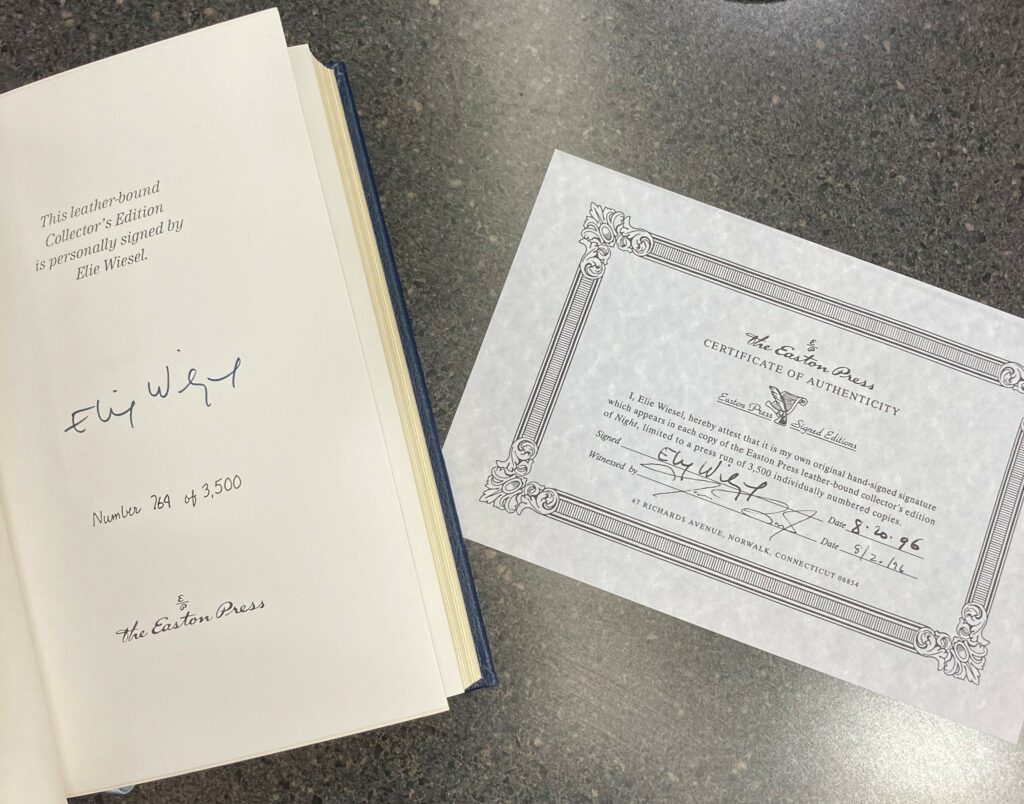 This leather-bound
Collector's Edition
is personally signed by
Elie Wiesel.
Elie Wiesel
Number 769 of 3,500
E
P
the Easton Press
E
P
the Easton Press
CERTIFICATE OF AUTHENTICITY
Easton Press Signed Editions
I, Elie Wiesel, hereby attest that it is my own original hand-signed signature
which appears in each copy of the Easton Press leather-bound collector's edition
of Night, limited to a press run of 3,500 individually numbered copies.
Signed Elie Wiesel Date 8·20.96
Witnessed by Date
47 RICHARDS AVENUE, NORWALK, CONNECTICUT 06854